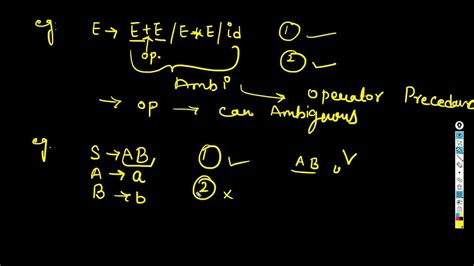 eg. E → E+E / E*E / id ① ✓
op. ② ✓
Ambi
→ operator Precedence
→ op → can Ambiguous
eg.
S → AB ① ✓ AB, V
A → a ② ×
B → b